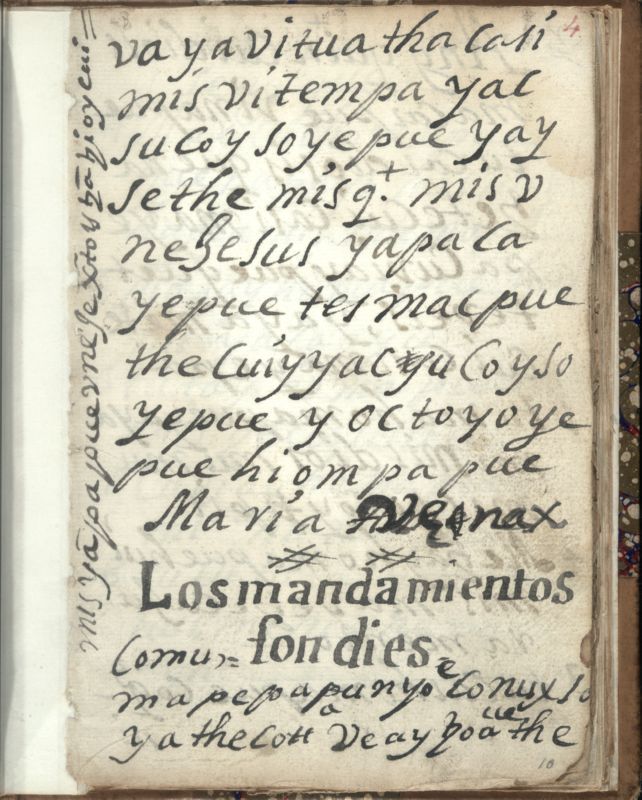 4
va ya vitua tha casi
mis vitem pa yac
su coy soye pue yay
se the mis q.+ mis v
ne hesus ya pa ca
ye pue tes mac pue
the cuiy yac gu coy so
ye pue y octoyo ye
pue hiom pa pue
Maria nax
Los mandamientos
son dies
Comu,=
ma pe pa pu nyo e co nux so
ya the cott a ve ay the
10
mis ya pa pue v ne he xto y